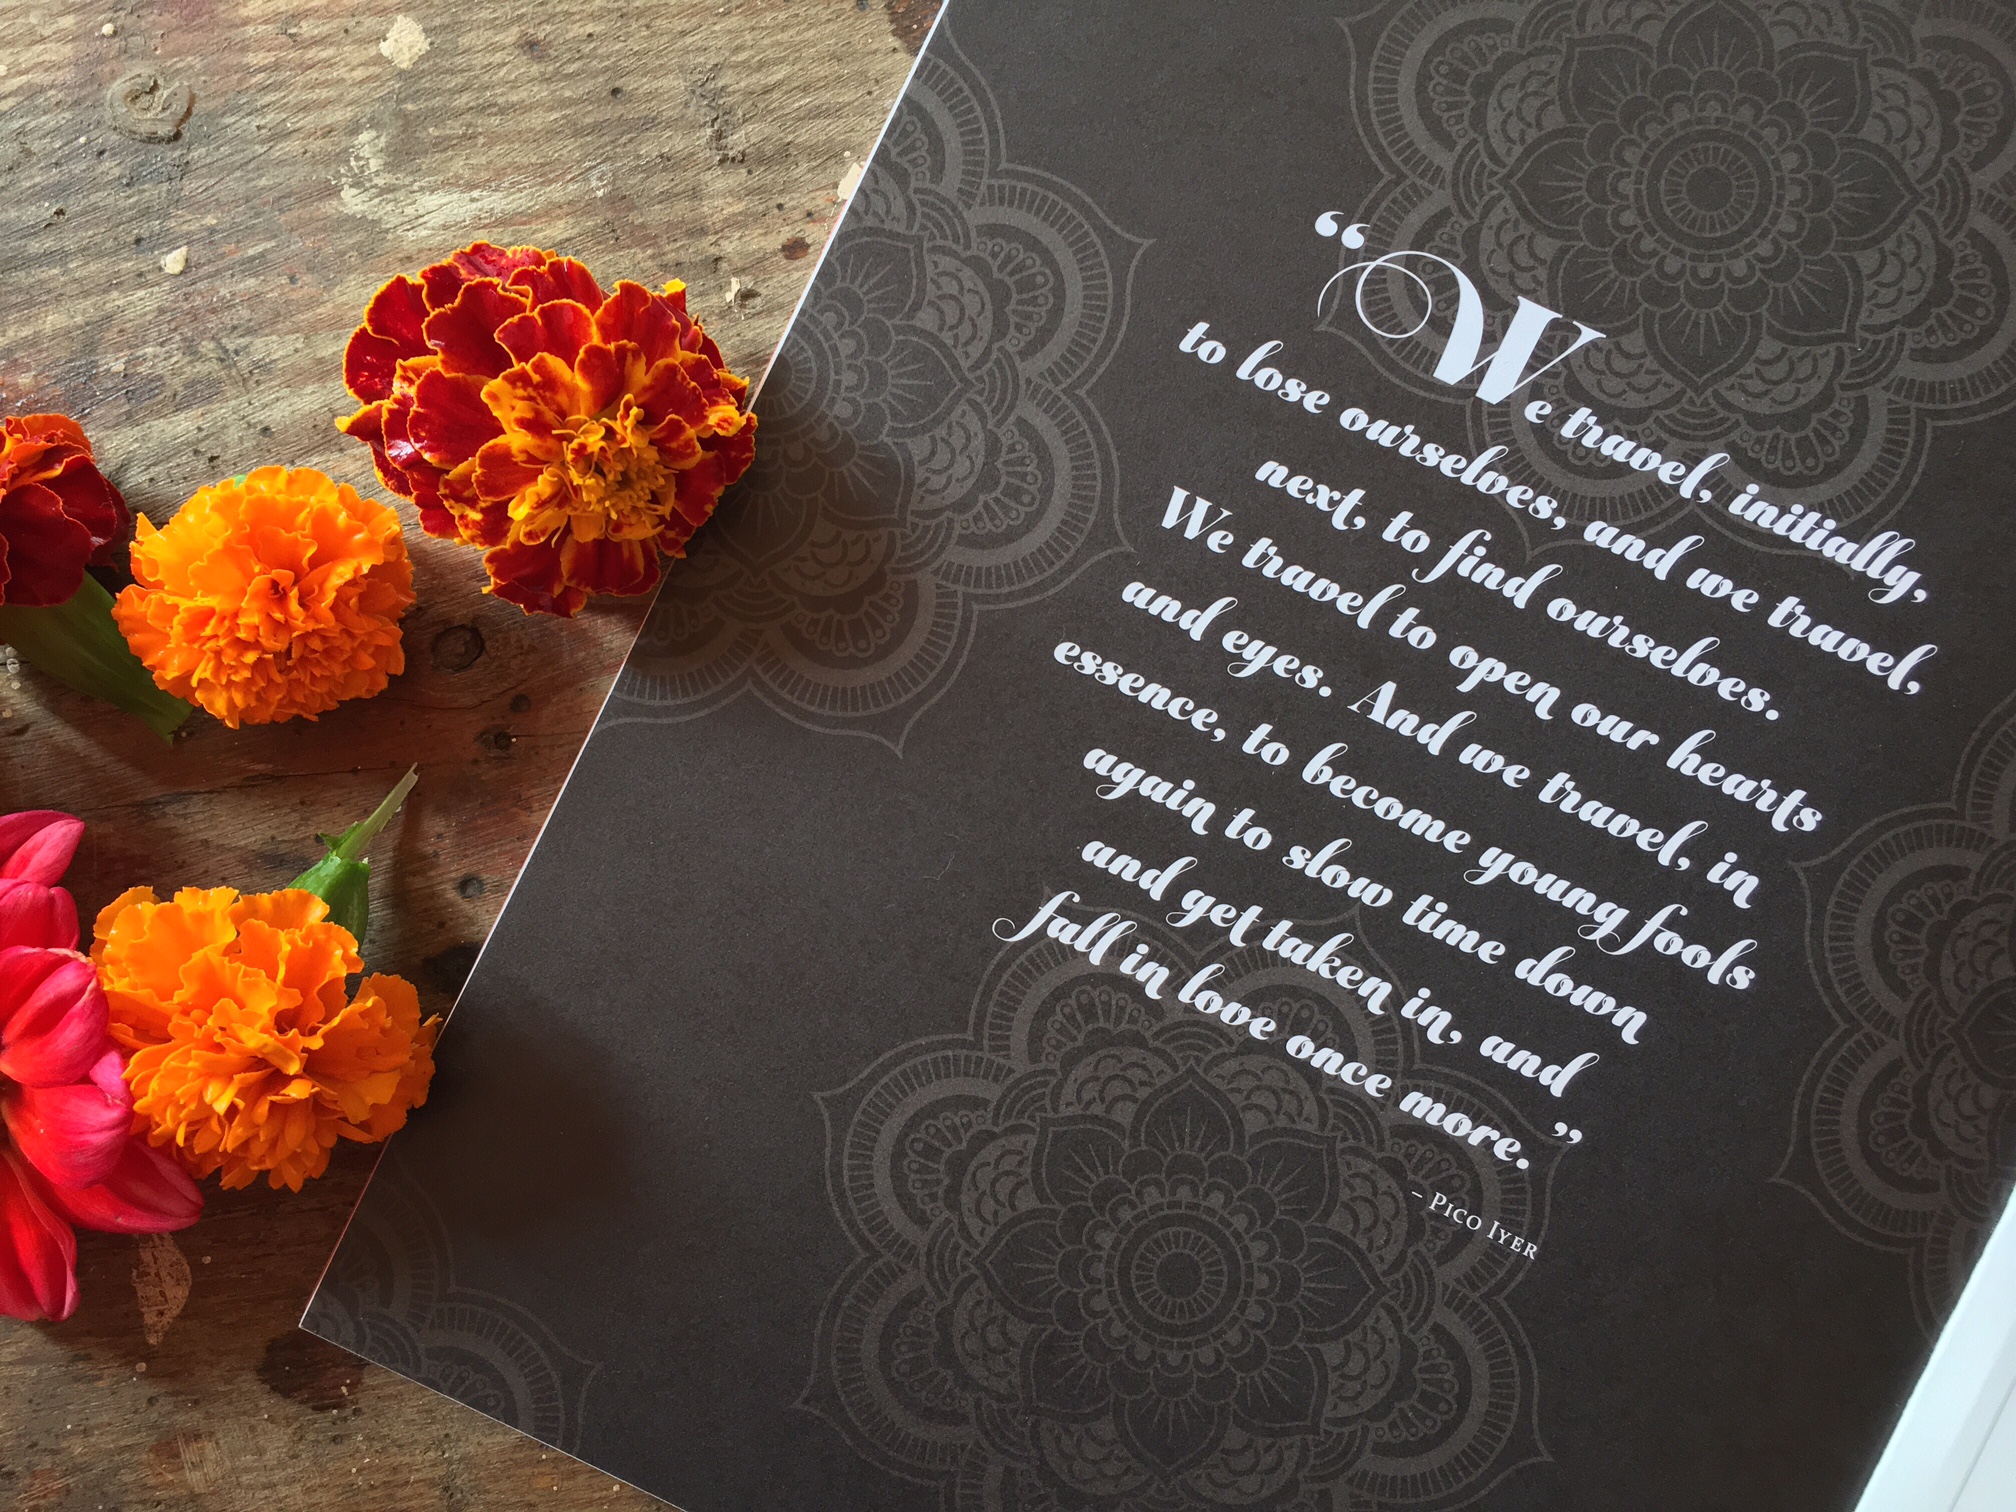 “We travel, initially,
to lose ourselves, and we travel,
next, to find ourselves.
We travel to open our hearts
and eyes. And we travel, in
essence, to become young fools
again to slow time down
and get taken in, and
fall in love once more.”
– Pico Iyer